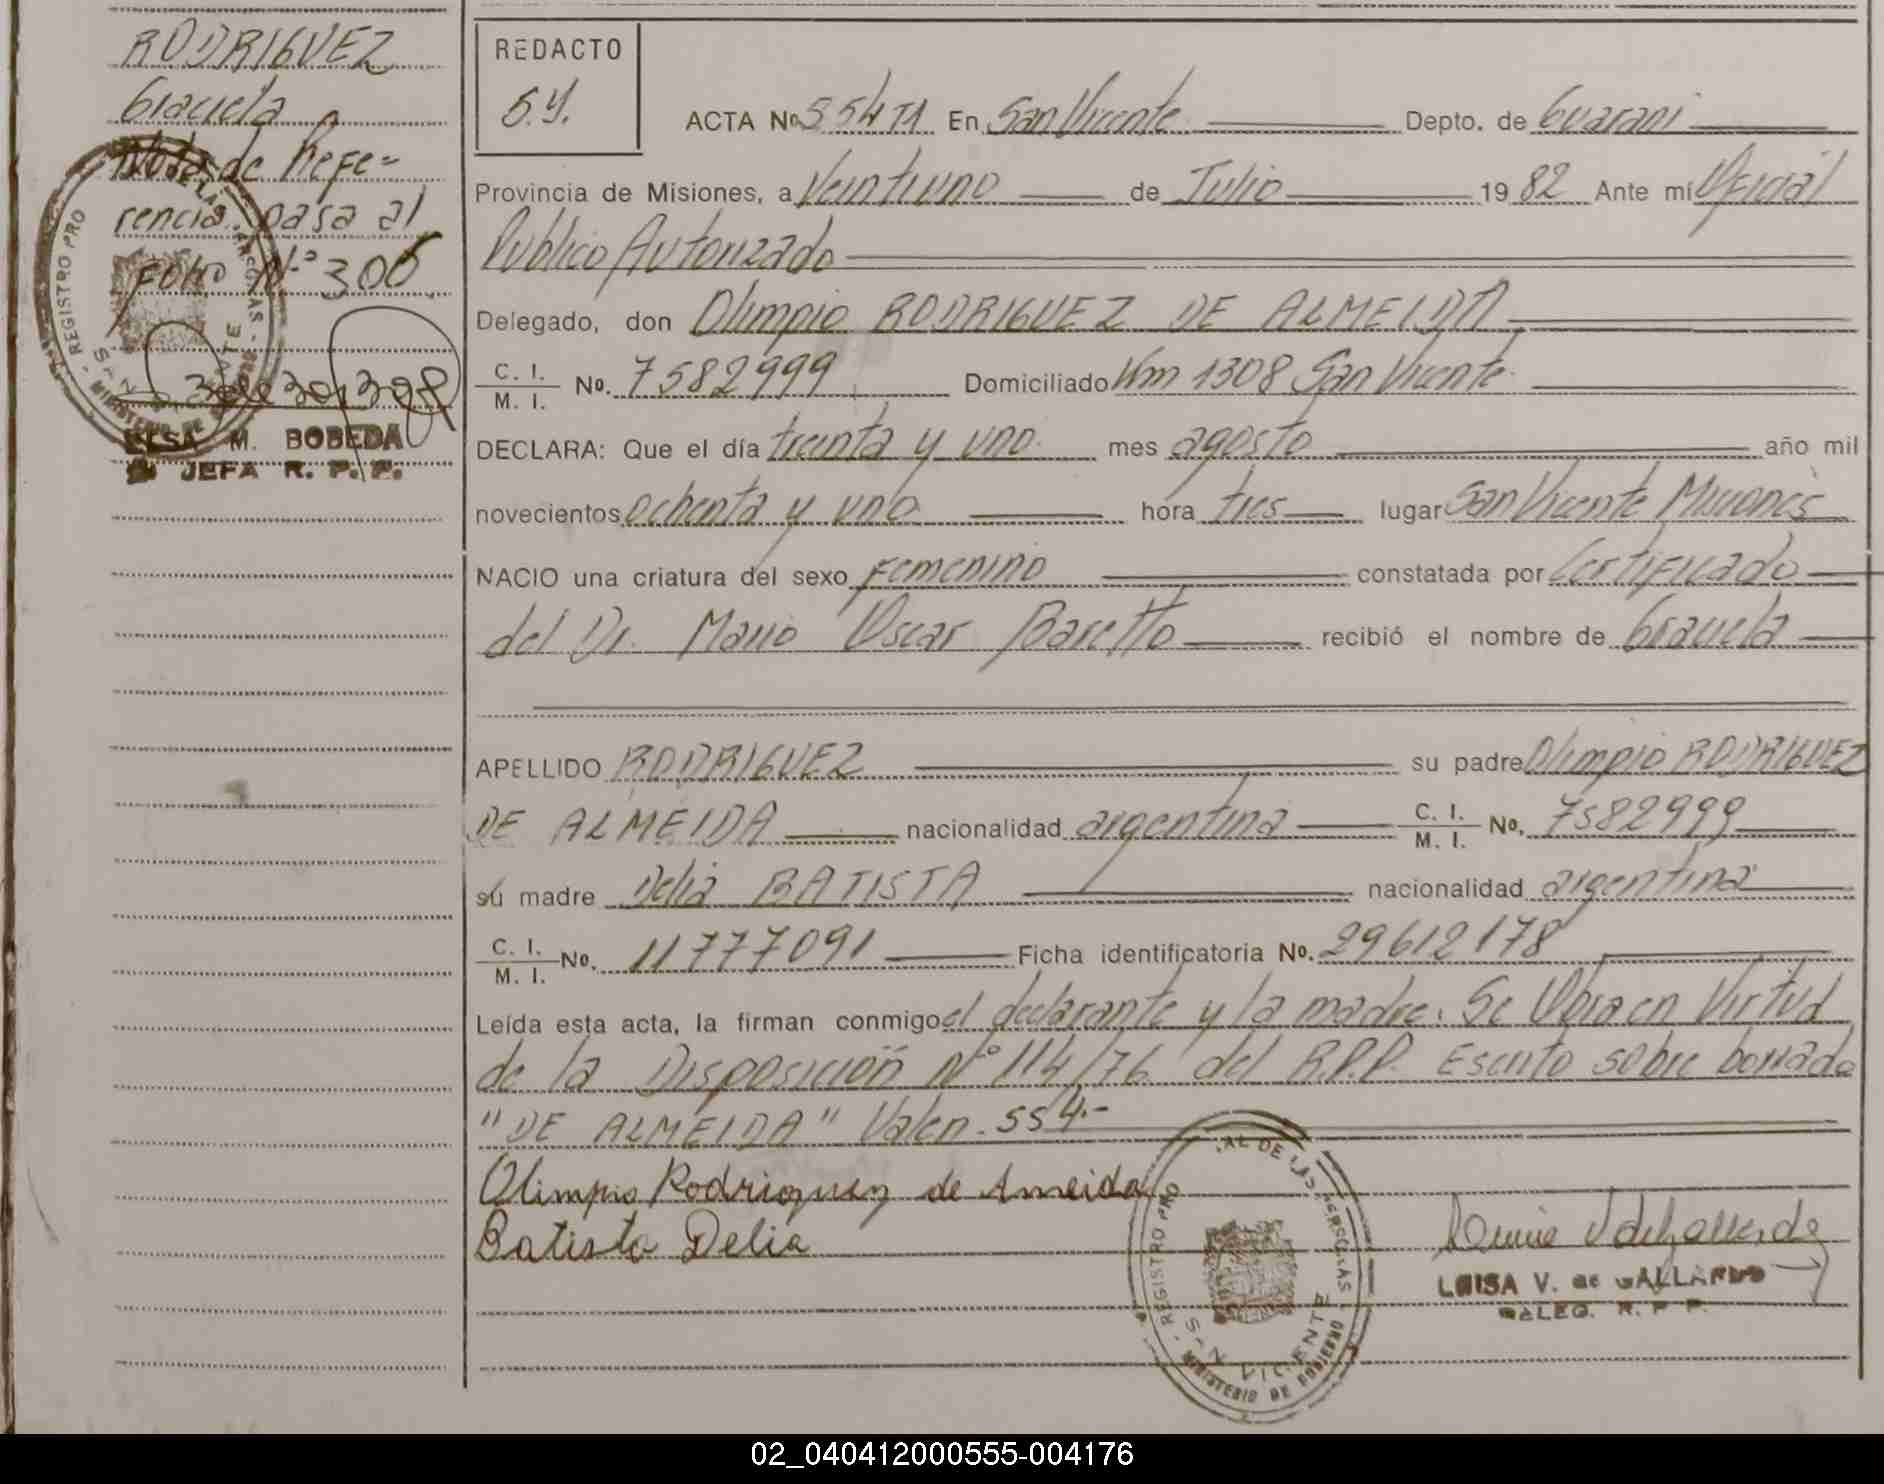 RODRIGUEZ
Graciela
Nota de Refe=
rencia pasa al
Folio N° 306
ELSA M. BOBEDA
JEFA R. P. P.
REDACTO
S.Y.
ACTA No. 554 T1 En San Vicente Depto. de Guarani
Provincia de Misiones, a Veintiuno de Julio 1982 Ante mí Oficial
Publico Autorizado
Delegado, don Olimpio RODRIGUEZ DE ALMEIDA
C. I. M. I. No. 7582999 Domiciliado Km 1308 San Vicente
DECLARA: Que el día treinta y uno mes agosto año mil
novecientos ochenta y uno hora tres lugar San Vicente Misiones
NACIO una criatura del sexo Femenino constatada por Certificado
del Dr. Mario Oscar Baretto recibió el nombre de Graciela
APELLIDO RODRIGUEZ su padre Olimpio RODRIGUEZ
DE ALMEIDA nacionalidad argentina C. I. M. I. No. 7582999
su madre Delia BATISTA nacionalidad argentina
C. I. M. I. No. 11777091 Ficha identificatoria No. 29612178
Leída esta acta, la firman conmigo el declarante y la madre. Se Obra en Virtud
de la Disposición N° 114/76 del R.P.P. Escrito sobre borrado
"DE ALMEIDA" Valen. 554.-
Olimpio Rodriguez de Ameida
Batista Delia
LUISA V. de GALLARDO
DALEG. R. P. P.
REGISTRO PRO AL DE LAS PERSONAS
SAN VICENTE
MINISTERIO DE GOBIERNO
02_040412000555-004176